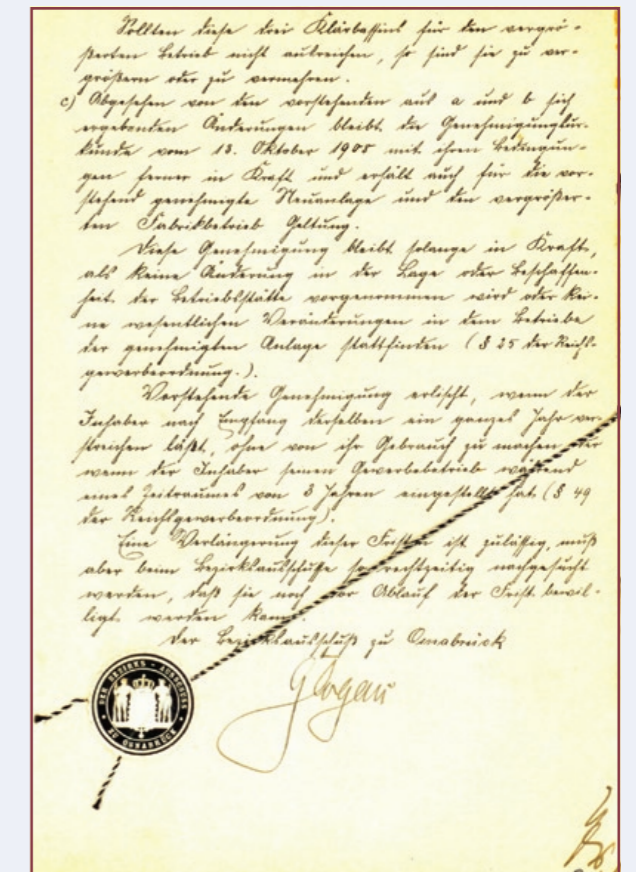 Sollten diese drei Klärbassins für den vergrö-
ßerten Betrieb nicht ausreichen, so sind sie zu ver-
größern oder zu vermehren.
c) Abgesehen von den vorstehenden aus a und b sich
ergebenden Änderungen bleibt die Genehmigungsur-
kunde vom 13. Oktober 1908 mit ihren Bedingun-
gen ferner in Kraft und erhält auch für die vor-
stehend genehmigte Neuanlage und den vergrößer-
ten Fabrikbetrieb Geltung.
Diese Genehmigung bleibt solange in Kraft,
als keine Änderung in der Lage oder Beschaffen-
heit der Betriebsstätte vorgenommen wird oder kei-
ne wesentlichen Veränderungen in dem Betriebe
der genehmigten Anlage stattfinden (§ 25 der Reichs-
gewerbeordnung.).
Vorstehende Genehmigung erlischt, wenn der
Inhaber nach Empfang derselben ein ganzes Jahr ver-
streichen läßt, ohne von ihr Gebrauch zu machen oder
wenn der Inhaber seinen Gewerbebetrieb während
eines Zeitraumes von 3 Jahren eingestellt hat (§ 49
der Reichsgewerbeordnung).
Eine Verlängerung dieser Fristen ist zulässig, muß
aber beim Bezirksausschusse so rechtzeitig nachgesucht
werden, daß sie noch vor Ablauf der Frist bewil-
ligt werden kann.
Der Bezirksausschuß zu Osnabrück
DER BEZIRKS-AUSSCHUSS
ZU OSNABRÜCK